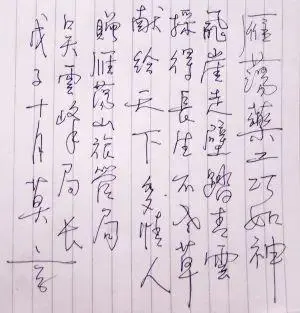 雁荡藥工巧如神
飛崖走壁踏青雲
採得長生不老草
献给天下多情人
贈雁荡山旅管局
吴雲峰局长
戊子十月莫言